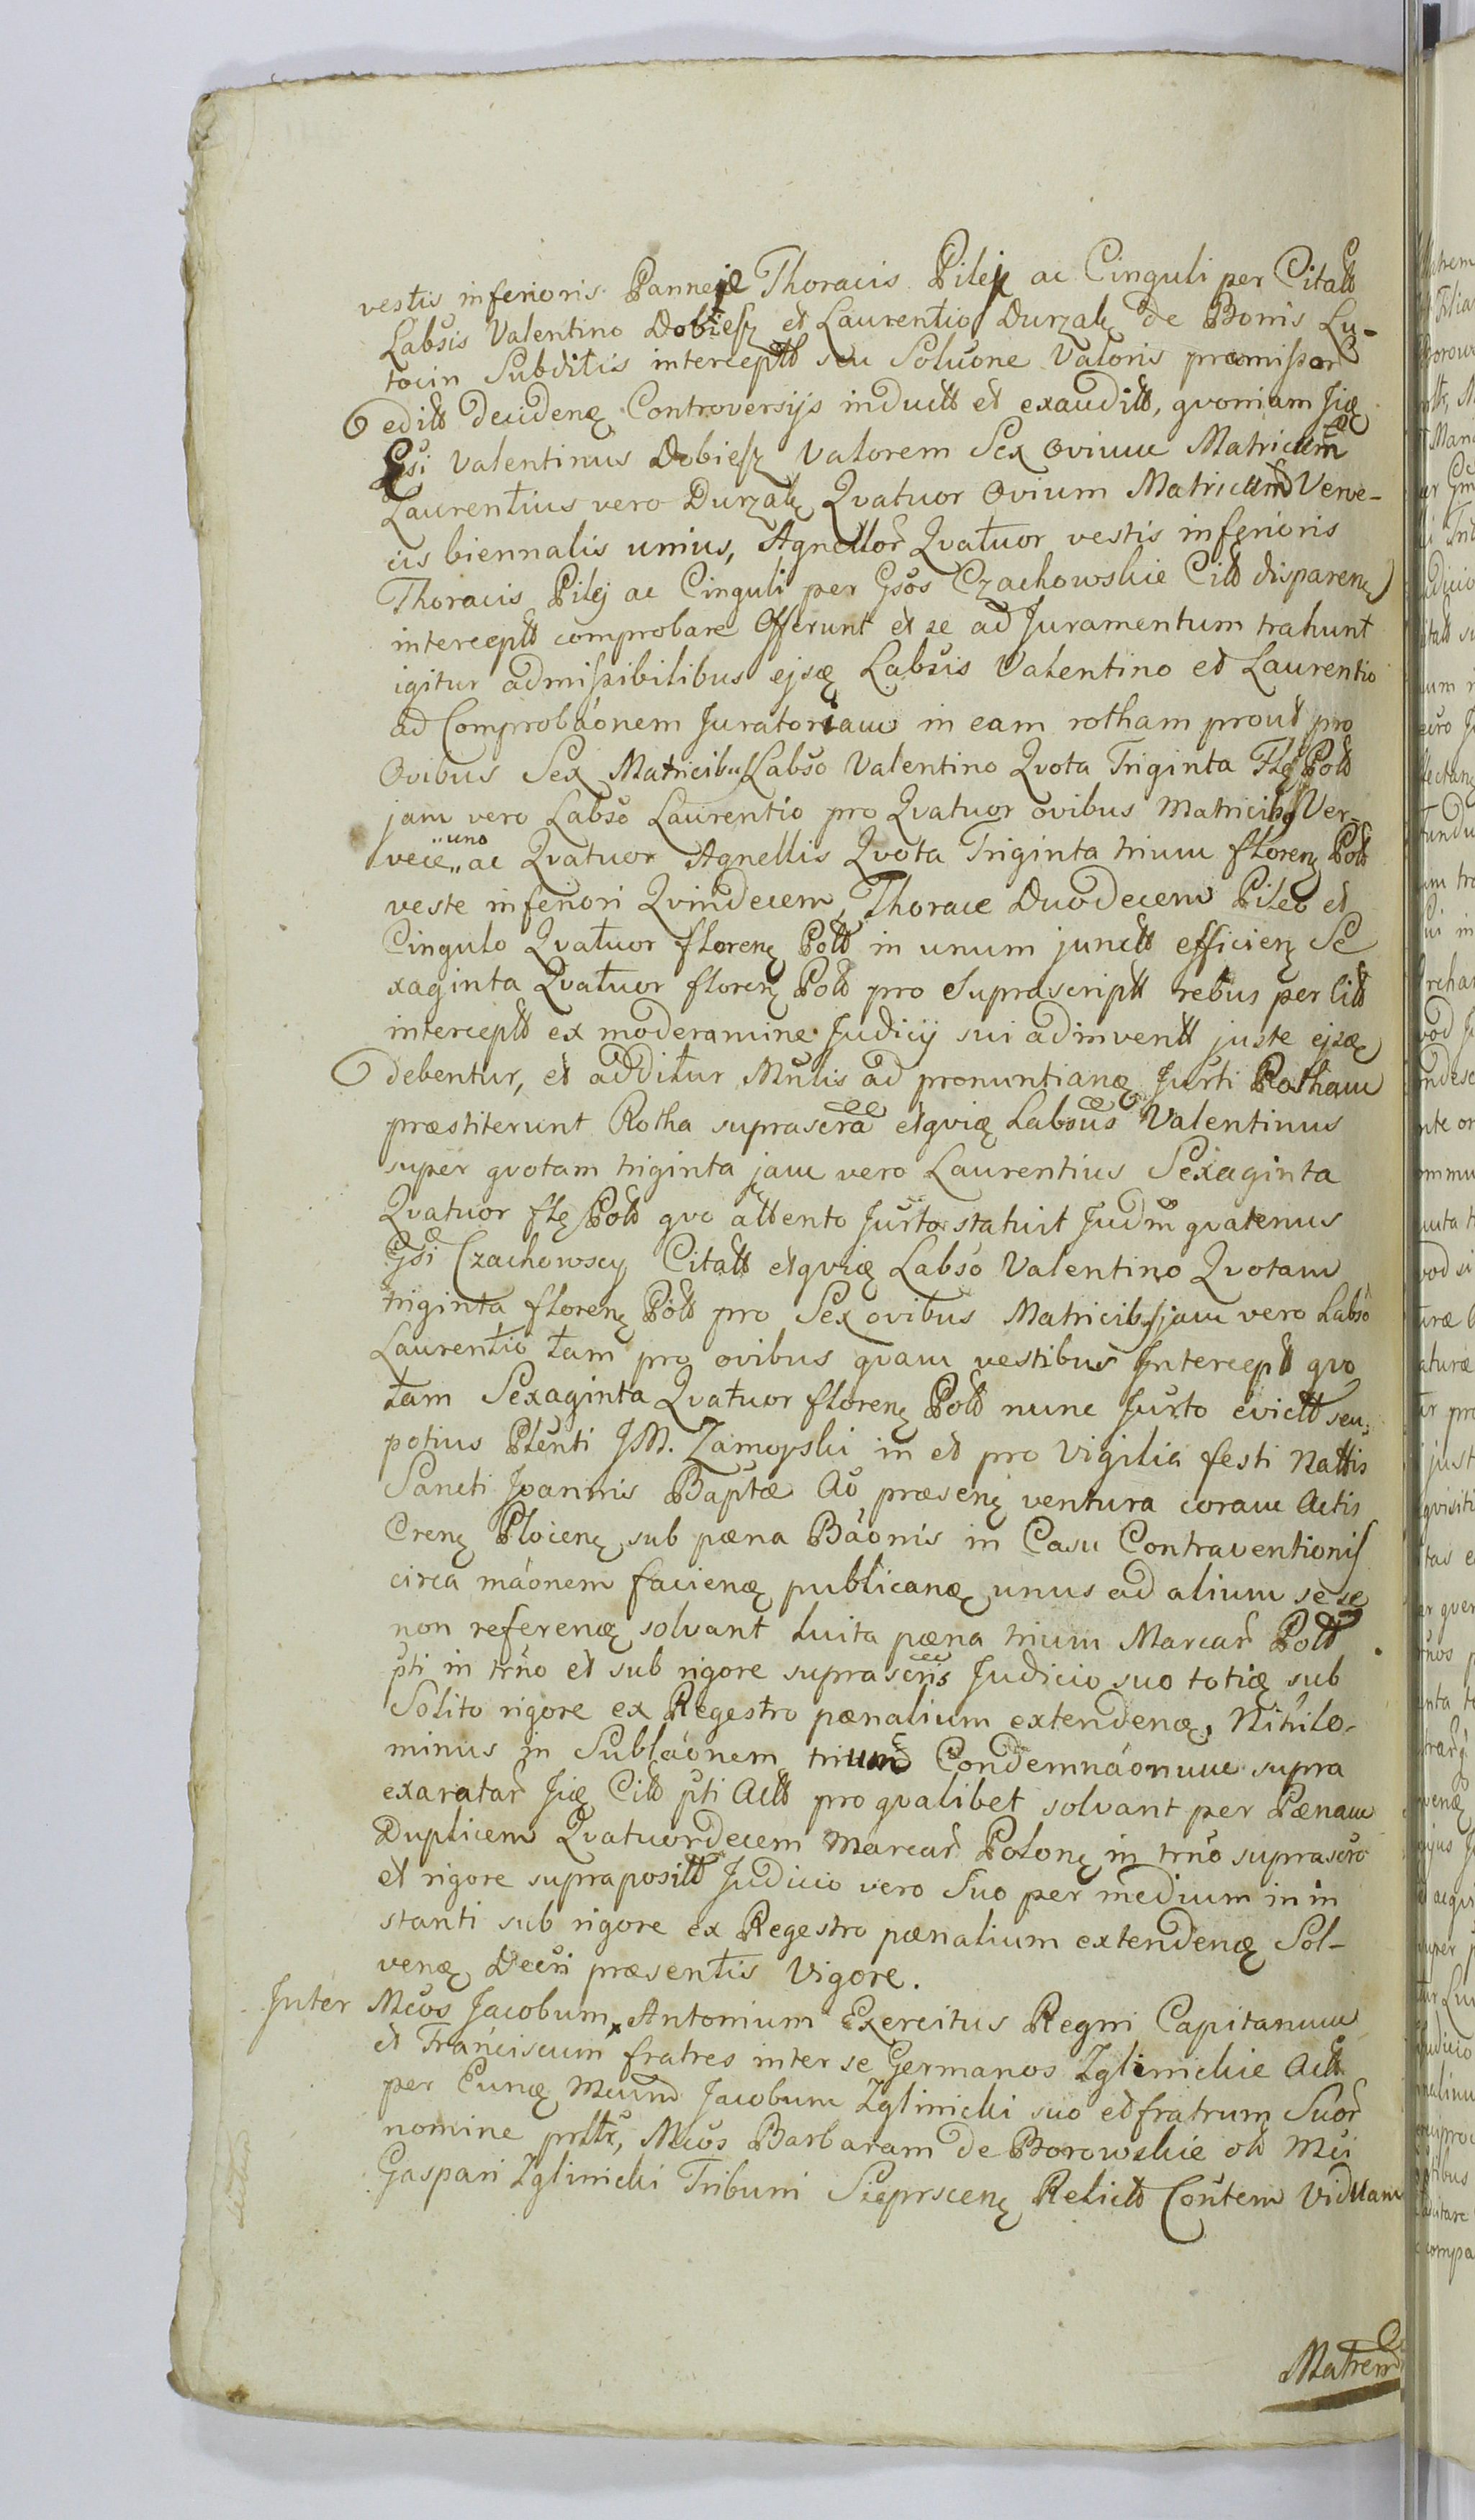 vestis inferioris Panneae Thoracis Pilej ac Cinguli per Citatt
Labsis Valentino Dobiesz et Laurentio Durzak de Bonis Lu-
tocin Subditis interceptt seu Soluone Valoris praemissor
editt decidenq Controversijs inductt et exauditt, qvoniam Jiq
Gsi Valentinus Dobiesz Valorem Sex Ovium Matricum
Laurentius vero Durzak Qvatuor Ovium Matricum Verve-
cis biennalis unius, Agnellor Qvatuor vestis inferioris
Thoracis Pilej ac Cinguli per Gsos Czachowskie Citt disparen
interceptt comprobare Offerunt et se ad Juramentum trahunt
igitur admissibilibus ejsq Labsis Valentino et Laurentio
ad Comprobaonem Juratoriam in eam rotham prout pro
Ovibus Sex Matricibus Labso Valentino Qvota Triginta Flq Pold
jam vero Labso Laurentio pro Qvatuor ovibus Matricibs Ver-
vece uno ac Qvatuor Agnellis Qvota Triginta trium floren Pold
veste inferiori Qvindecem, Thorace Duodecem Pileo et
Cingulo Qvatuor floren Pold in unum junctt efficien Se
xaginta Qvatuor floren Pold pro Suprascriptt rebus per Citt
interceptt ex moderamine Judicij sui adinventt juste ejsq
debentur, et additur Mnlis ad pronuntianq Jurti Rotham
praestiterunt Rotha suprascra etqviq Labsus Valentinus
super qvotam triginta jam vero Laurentius Sexaginta
Qvatuor flq Pold qvo attento Jurto statuit Judm qvatenus
Gsi Czachowscy Citatt etqviq Labso Valentino Qvotam
triginta floren Pold pro Sex ovibus Matricibs jam vero Labso
Laurentio tam pro ovibus qvam vestibus Intercept qvo
tam Sexaginta Qvatuor floren Pold nunc Jurto evictt seu
potius Plenti JM. Zamoyski in et pro Vigilia festi Nattis
Sancti Joannis Baptae Ao praesen ventura coram Actis
Cren Plocen sub paena Baonis in Casu Contraventionis
circa maonem facienq publicanq unus ad alium sese
non referenq solvant Luita paena trium Marcar Pold
pti in trno et sub rigore suprascris Judicio suo totiq sub
Solito rigore ex Regestro paenalium extendenq, Nihilo-
minus in Sublaonem trium Condemnaonum supra
exaratar Jiq Citt pti Actt pro qvalibet solvant per Paenam
Duplicem Qvatuordecem Marcar Polon in trno suprascro
et rigore supraposittt Judicio vero Suo per medium in in
stanti sub rigore ex Regestro paenalium extendenq Sol-
venq Decri praesentis Vigore.
Inter Mcos Jacobum, Antonium Exercitus Regni Capitanum
et Franciscum fratres inter se Germanos Zglinickie Actt
per Eunq Mcum Jacobum Zglinicki suo et fratrum Suor
nomine prltr, Mcos Barbaram de Borowskie olt Mci
Gaspari Zglinicki Tribuni Sieprscen Relictt Contem Viduam
Matrem